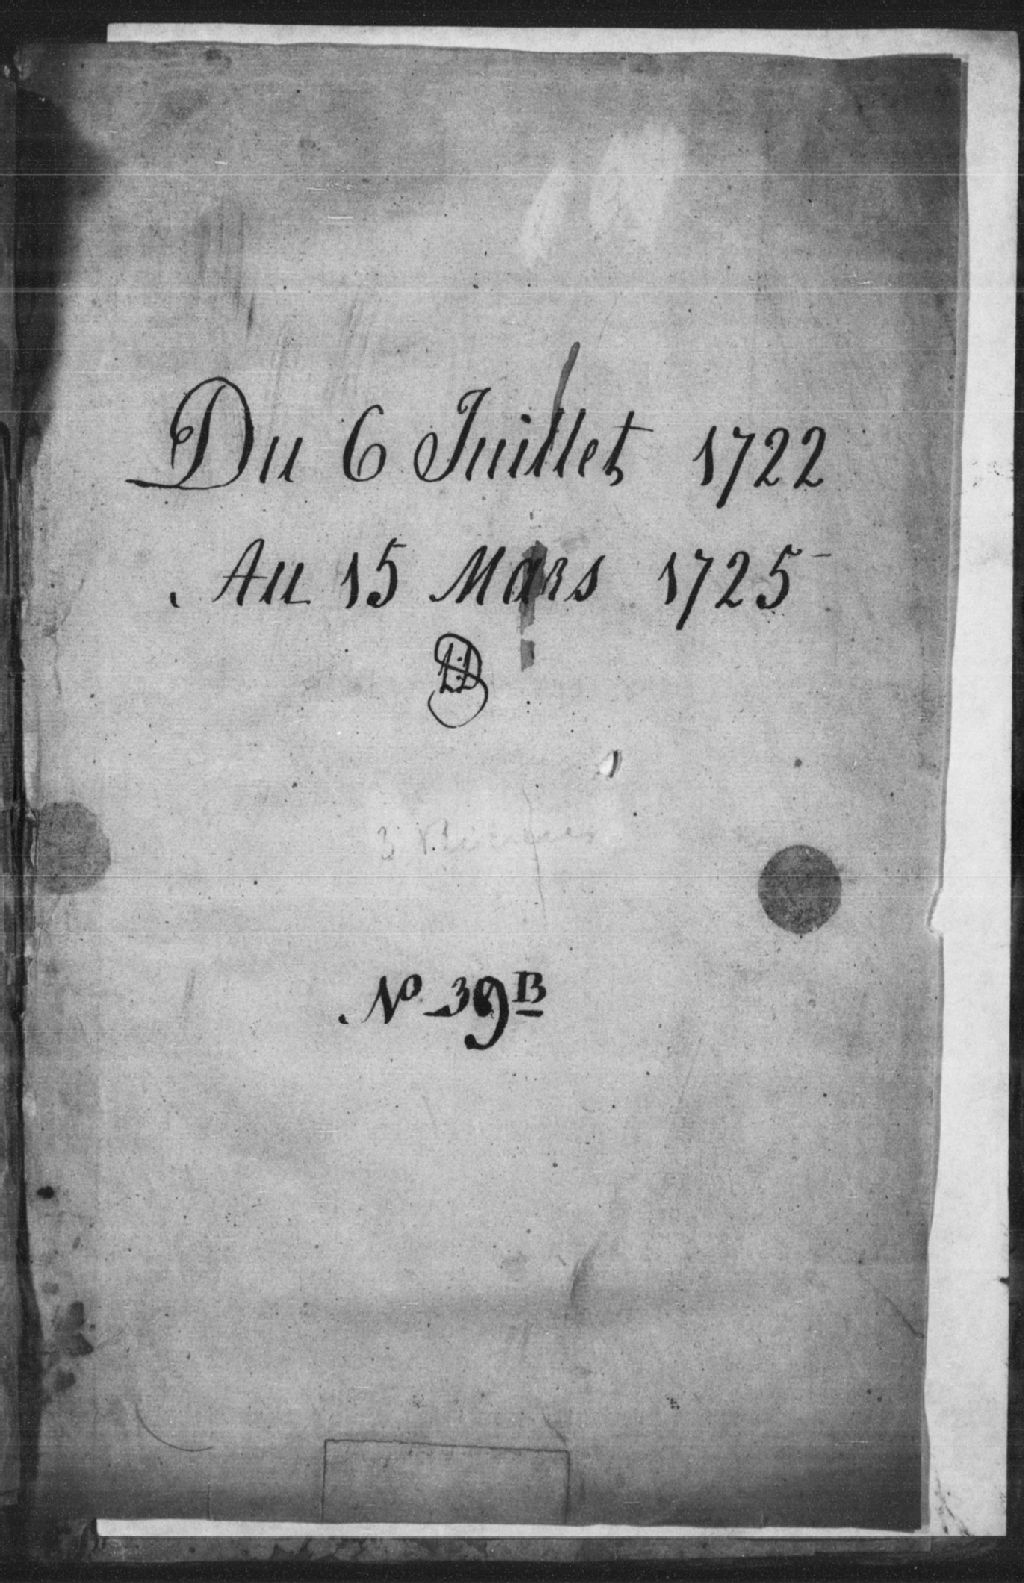 Du 6 Juillet 1722
Au 15 Mars 1725
No 39B